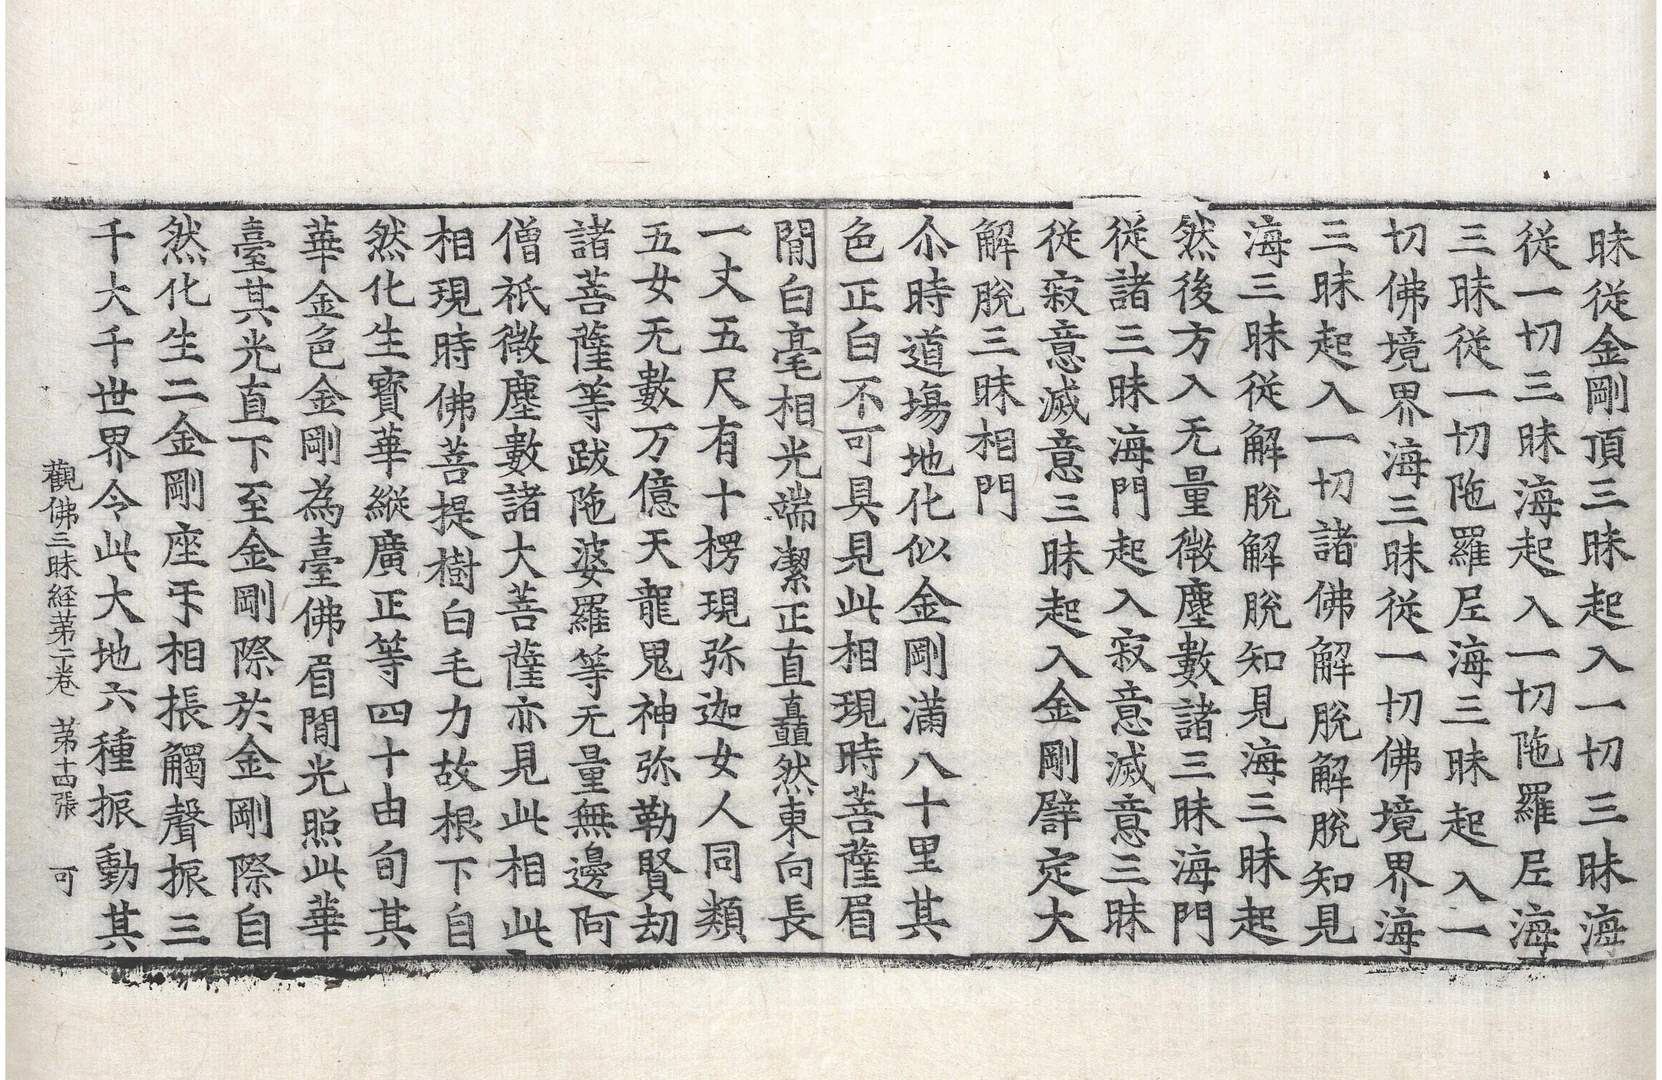 昧従金剛頂三昧起入一切三昧海
従一切三昧海起入一切陁羅尼海
三昧従一切陁羅尼海三昧起入一
切佛境界海三昧従一切佛境界海
三昧起入一切諸佛解脫解脫知見
海三昧従解脫解脫知見海三昧起
然後方入无量微塵數諸三昧海門
従諸三昧海門起入寂意滅意三昧
従寂意滅意三昧起入金剛辟定大
解脫三昧相門
尒時道場地化似金剛滿八十里其
色正白不可具見此相現時菩薩眉
閒白毫相光端潔正直矗然東向長
一丈五尺有十楞現弥迦女人同類
五女无數万億天龍鬼神弥勒賢劫
諸菩薩等跋陁婆羅等无量無邊阿
僧祇微塵數諸大菩薩亦見此相此
相現時佛菩提樹白毛力故根下自
然化生寶華縱廣正等四十由旬其
華金色金剛為臺佛眉閒光照此華
臺其光直下至金剛際於金剛際自
然化生二金剛座㸦相掁觸聲振三
千大千世界令此大地六種振動其
觀佛三昧経苐二卷 苐十四張 可